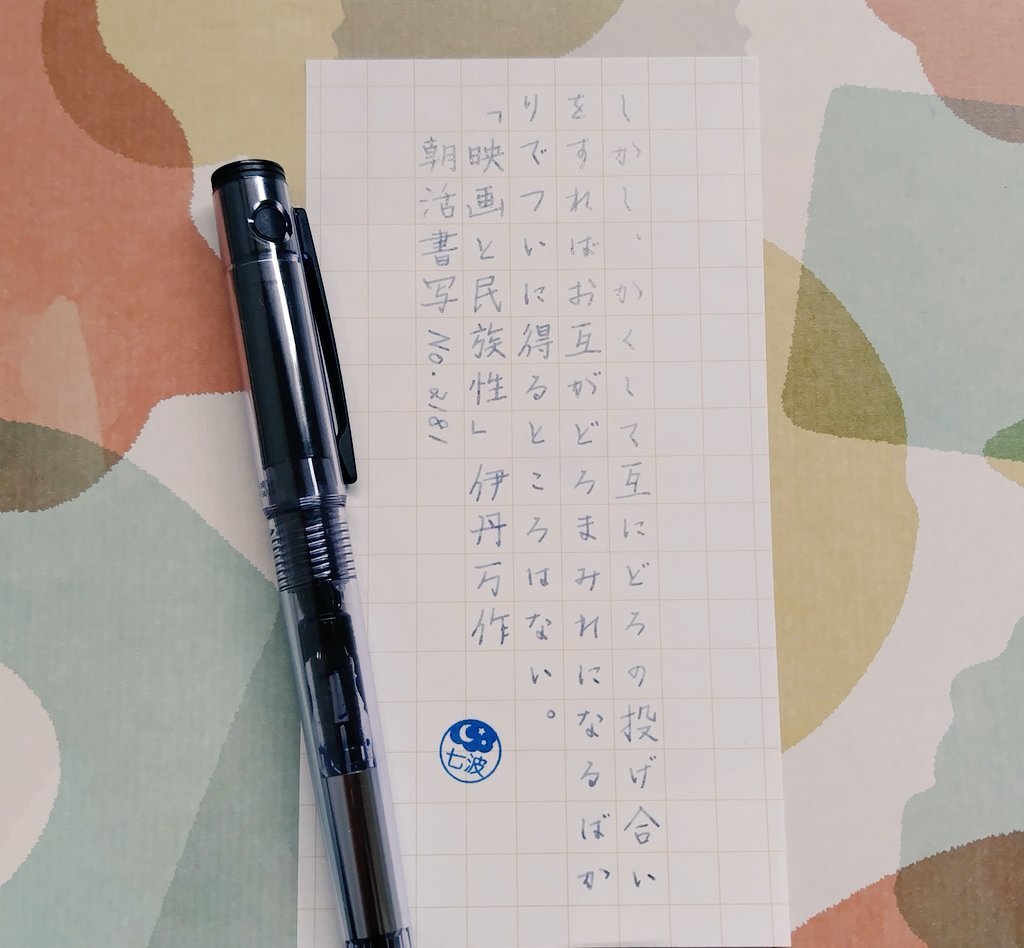 しかし、かくして互にどろの投げ合い
をすればお互がどろまみれになるばか
りでついに得るところはない。
「映画と民族性」伊丹万作
朝活書写No.2181
七波